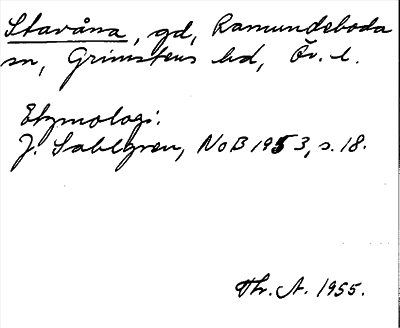 Stavåna, gd, Ramundeboda
sn, Grimstens hd, Ör. l.
Etymologi:
J. Sahlgren, NoB 1953, s. 18.
Thr. A. 1955.